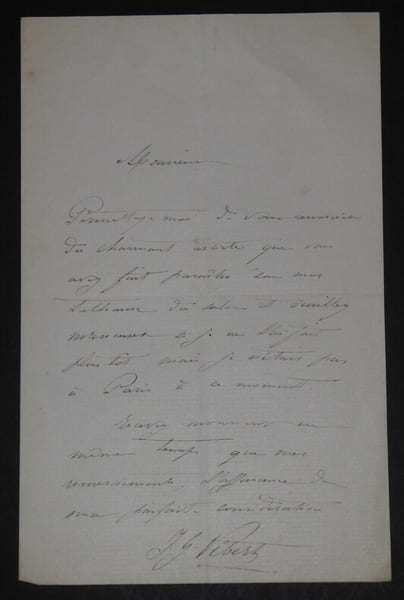 Monsieur
Permettez-moi de vous remercier
du charmant article que vous
avez fait paraître sur mes
tableaux du salon et veuillez
m'excuser si je ne l'ai fait
plus tôt mais je n'étais pas
à Paris à ce moment.
Recevez monsieur en
même temps que mes
remerciements, l'assurance de
ma parfaite considération
J. G. Vibert